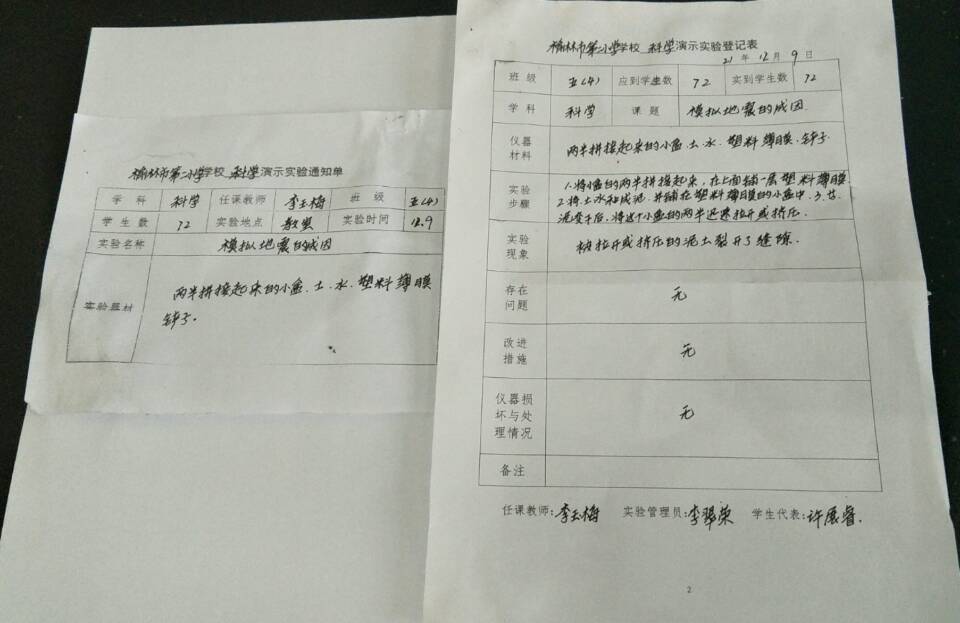 榆林市第二小学学校 科学演示实验通知单
学科 科学 任课教师 李玉梅 班级 五(4)
学生数 72 实验地点 教室 实验时间 12.9
实验名称 模拟地震的成因
实验器材 两半拼接起来的小盒、土、水、塑料薄膜
铲子.
榆林市第二小学学校 科学演示实验登记表
21年12月9日
班级 五(4) 应到学生数 72 实到学生数 72
学科 科学 课题 模拟地震的成因.
仪器材料 两半拼接起来的小盒、土、水、塑料薄膜、铲子.
实验步骤 1.将小盒的两半拼接起来,在上面铺一层塑料薄膜
2.将土水和成泥,并铺在塑料薄膜的小盒中.3.等
泥变干后,将这个小盒的两半迅速拉开或挤压.
实验现象 被拉开或挤压的泥土裂开了缝隙.
存在问题 无
改进措施 无
仪器损坏与处理情况 无
备注
任课教师:李玉梅 实验管理员:李翠荣 学生代表:许展睿.
2